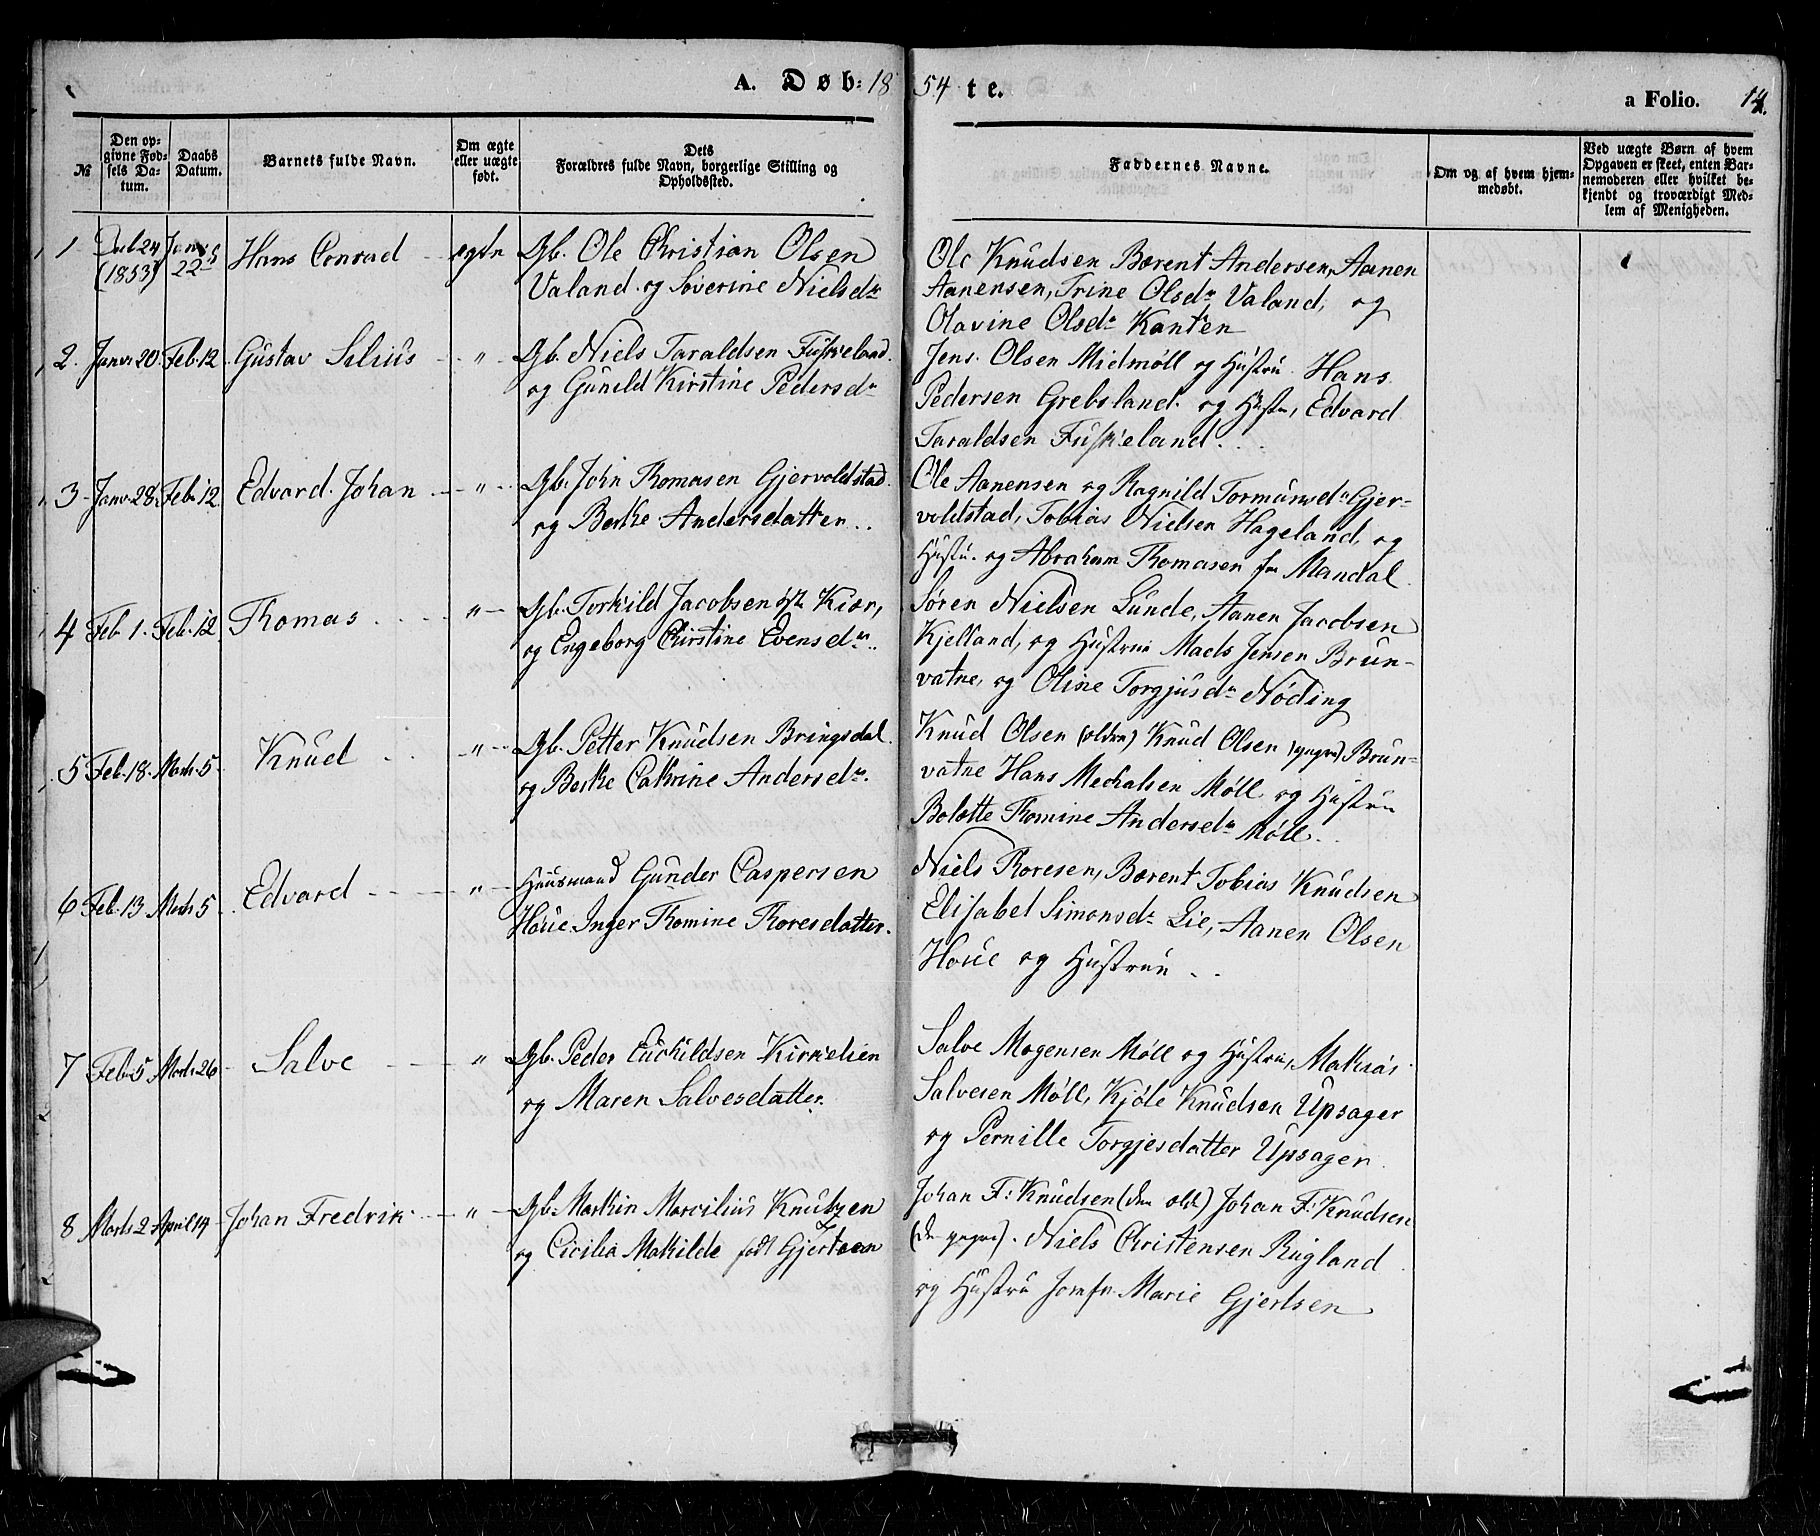 A. Døb: 18 54 te.
a Folio. 14.
№
Den op-
givne Fød-
sels Da-
tum.
Daabs
Datum.
Barnets fulde Navn.
Om ægte
eller uægte
født.
Dets
Forældres fulde Navn, borgerlige Stilling og
Opholdssted.
Faddernes Navne.
Om og af hvem hjem-
medøbt.
Ved uægte Børn af hvem
Opgaven er skeet, enten Bar-
nemoderen eller hvilket be-
kjendt og troværdigt Med-
lem af Menigheden.
1 24 (1853) 22 Hans Conrad ægte Gb. Ole Christian Olsen
Valand og Severine Nielsdr
Ole Knudsen Berent Andersen, Aanen
Aanensen, Trine Olsdr Valand, og
Olavine Olsdr Kanten
2. Janv. 20. Feb. 12. Gustav Selius " Gb. Niels Taraldsen Fuskeland.
og Gunild Kirstine Pedersdr
Jens Olsen Midmøll og Hustru Hans
Pedersen Grebsland og Hustru, Edvard
Taraldsen Fuskeland.
3 Janv. 28. Feb. 12 Edvard Johan " Gb. John Thomasen Gjervoldstad.
og Berthe Andersdatter
Ole Aanensen og Ragnild Tormunsdr Gjer-
voldstad, Tobias Nielsen Hageland, og
Hustru og Abraham Thomasen fra Mandal.
4 Feb. 1. Feb. 12 Thomas " Gb. Torkild Jacobsen Kiær,
og Engeborg Chirstine Evensdr
Søren Nielsen Lunde, Aanen Jacobsen
Kjelland, og Hustrue Mads Jensen Brun-
vatne, og Oline Torgjusdr Nøding
5 Feb. 18. Marts 5 Knud " Gb. Petter Knudsen Bringsdal
og Berthe Cathrine Andersdr.
Knud Olsen (olden) Knud Olsen (yngre) Brun-
vatne Hans Mechalsen Møll og Hustrue
Bolette Thomine Andersdr Møll.
6 Feb. 13 Marts 5 Edvard " Huusmand Gunder Caspersen
Houe Inger Thomine Thoresdatter.
Niels Thoresen, Berent Tobias Knudsen
Elisabet Simonsdr Lie, Aanen Olsen
Houe og Hustrue
7 Feb. 5 Marts 26 Salve " Gb. Peder Euchildsen Kirkelien
og Maren Salvesdatter.
Salve Mogensen Møll og Hustrue, Mathias
Salvesen Møll, Kjøle Knudsen Upsager
og Pernille Torgjesdatter Upsager.
8 Marts 2 April 14 Johan Fredrik " Gb. Marthin Marcilius Knutzen
og Cicilia Mathilde født Gjertsen
Johan F: Knudsen (den ælde) Johan F: Knudsen
(den yngre). Niels Christensen Rugland
og Hustru Jomfr. Marie Gjertsen